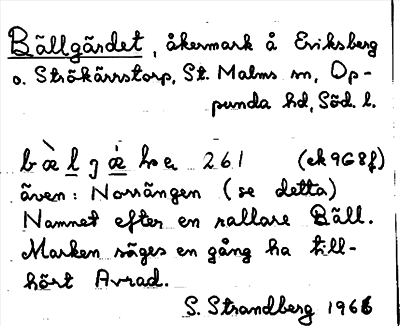 Bällgärdet, åkermark å Eriksberg
o. Strökärrstorp, St. Malms sn, Op-
punda hd, Söd. l.
261 (ek 968f)
även: Norrängen (se detta)
Namnet efter en rallare Bäll.
Marken säges en gång ha till-
hört Avrad.
S. Strandberg 1966